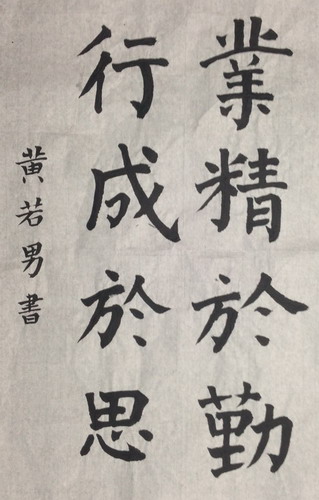 業精於勤
行成於思
黄若男書